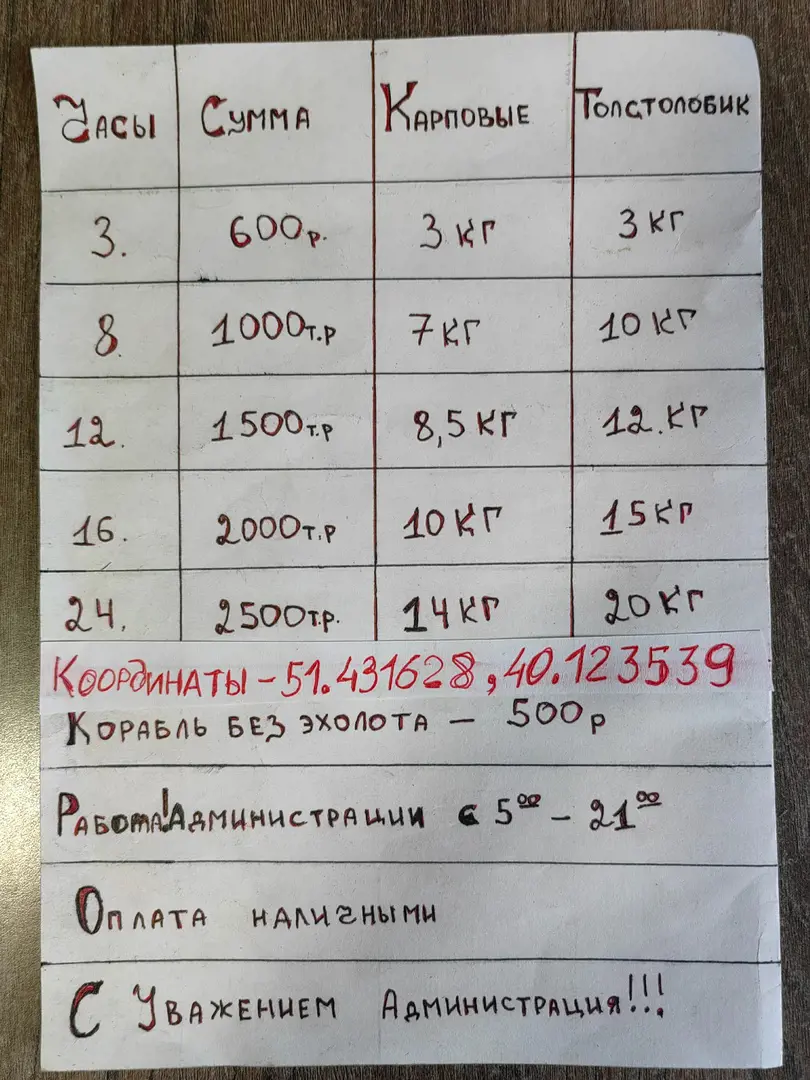 Часы Сумма Карповые Толстолобик
3. 600р. 3 кг 3 кг
8. 1000т.р 7 кг 10 кг
12. 1500т.р 8,5 кг 12.кг
16. 2000т.р 10 кг 15 кг
24. 2500т.р. 14 кг 20 кг
Координаты – 51.431628, 40.123539
Корабль без эхолота – 500р
Работа!Администрации с 5⁰⁰ – 21⁰⁰
Оплата наличными
С Уважением Администрация!!!